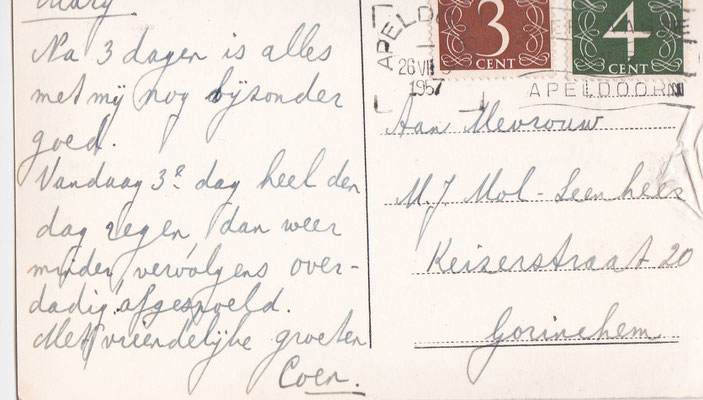 Mary
Na 3 dagen is alles
met mij nog bijzonder
goed.
Vandaag 3e dag heel den
dag regen, dan weer
minder vervolgens over-
dadig afgespoeld.
Met vriendelijke groeten
Coen.
APELDOORN
26 VII
1957
3
CENT
4
CENT
APELDOORN
Aan Mevrouw
M.J. Mol-Leenheer
Keizerstraat 20
Gorinchem